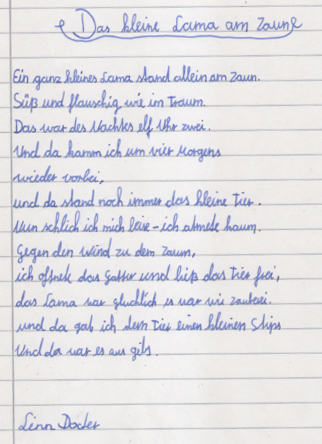 Das kleine Lama am Zaun
Ein ganz kleines Lama stand allein am Zaun.
Süß und flauschig wie im Traum.
Das war des Nachtes elf Uhr zwei.
Und da kamm ich um vier Morgens
wieder vorbei,
und da stand noch immer das kleine Tier.
Nun schlich ich mich leise - ich atmete kaum.
Gegen den Wind zu dem Zaum,
ich öffnete das Gatter und ließ das Tier frei,
das Lama war glucklich es war wie zauberei.
und da gab ich dem Tier einen kleinen Stips
Und da war es aus gibs.
Linn